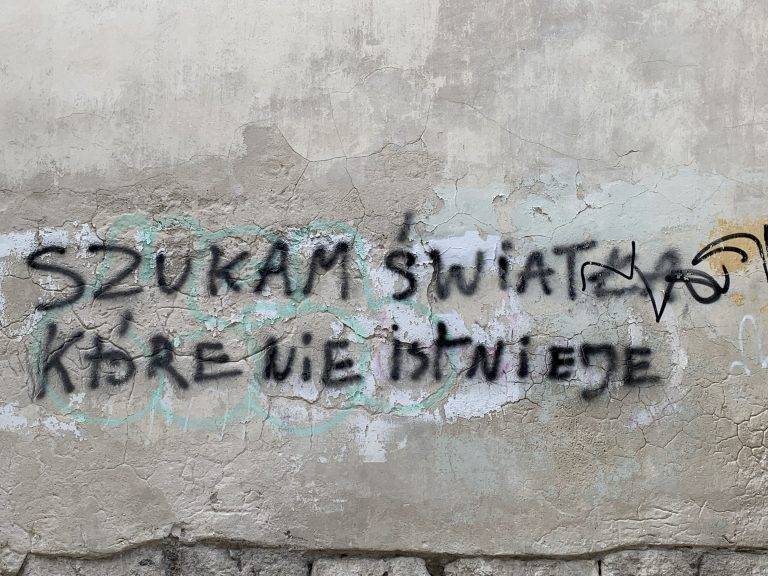 SZUKAM ŚWIATŁA
KTÓRE NIE ISTNIEJE